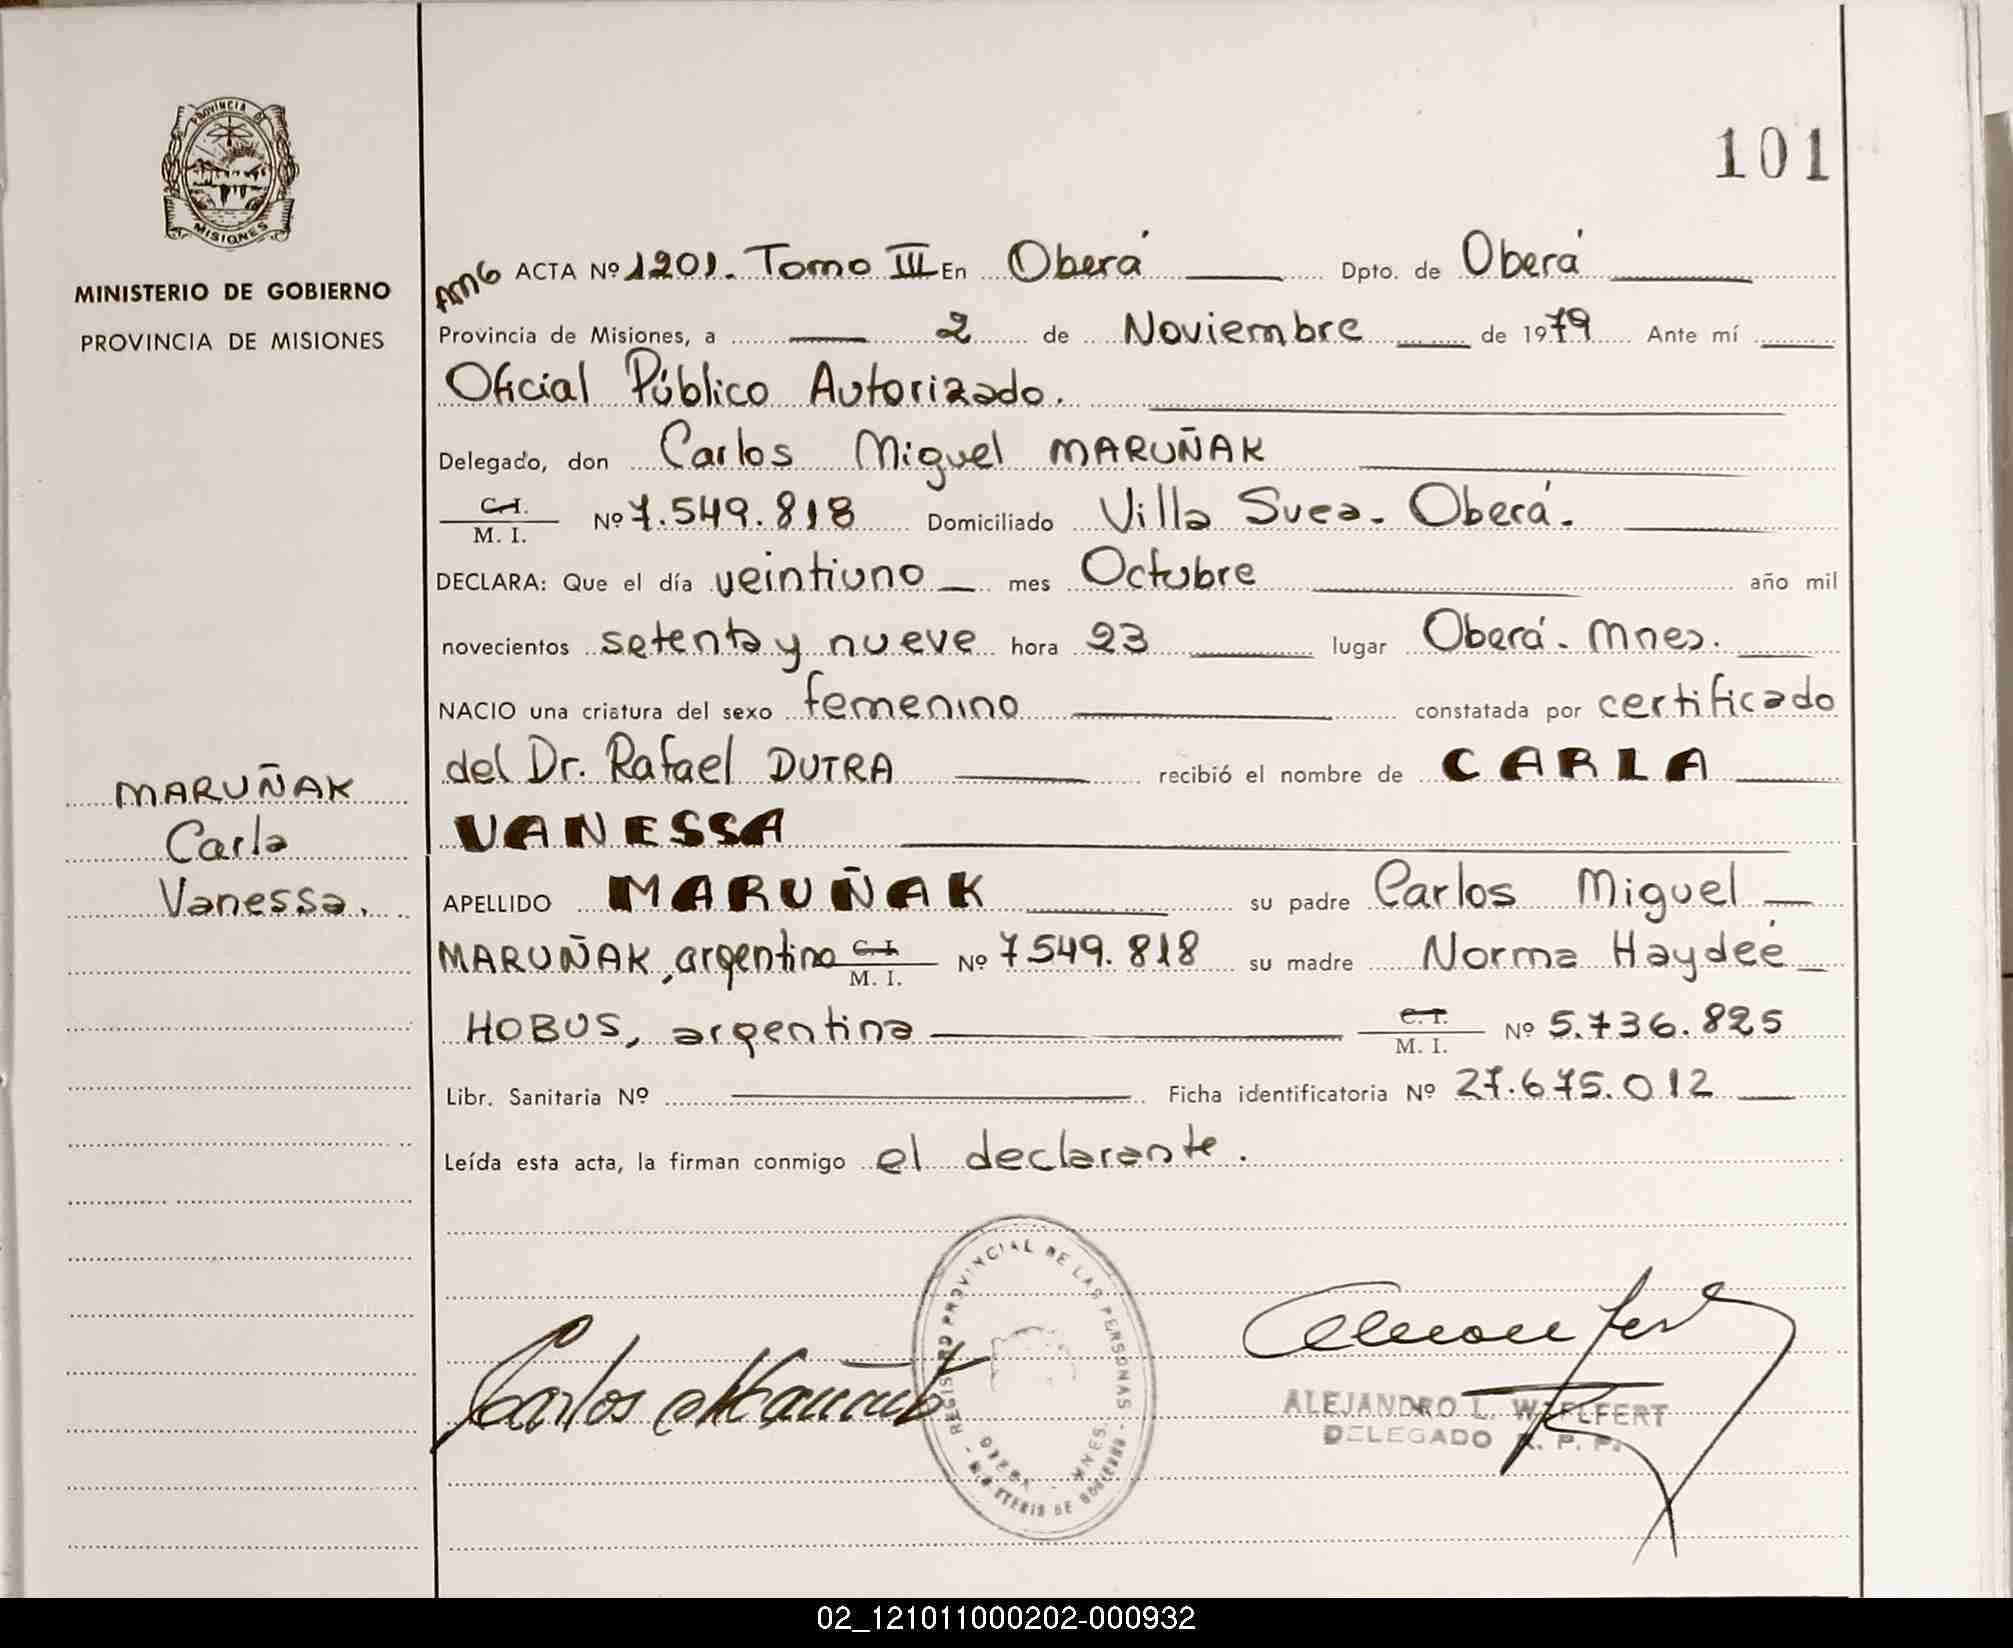 PROVINCIA DE
MISIONES
MINISTERIO DE GOBIERNO
PROVINCIA DE MISIONES
MARUÑAK
Carla
Vanessa.
101
AMG ACTA Nº 1201. Tomo III En Oberá Dpto. de Oberá
Provincia de Misiones, a 2 de Noviembre de 1979 Ante mí
Oficial Público Autorizado.
Delegado, don Carlos Miguel MARUÑAK
C.I.
M. I. Nº 7.549.818 Domiciliado Villa Svea. Oberá.
DECLARA: Que el día veintiuno mes Octubre año mil
novecientos setenta y nueve hora 23 lugar Oberá. Mnes.
NACIO una criatura del sexo femenino constatada por certificado
del Dr. Rafael DUTRA recibió el nombre de CARLA
VANESSA
APELLIDO MARUÑAK su padre Carlos Miguel
MARUÑAK, argentino C.I. M. I. Nº 7549.818 su madre Norma Haydeé
HOBUS, argentina C.I. M. I. Nº 5.736.825
Libr. Sanitaria Nº Ficha identificatoria Nº 27.675.012
Leída esta acta, la firman conmigo el declarante.
REGISTRO PROVINCIAL DE LAS PERSONAS - MINISTERIO DE GOBIERNO -
OBERA MNES.
Carlos Maruñak
ALEJANDRO L. WELFERT
DELEGADO R. P. P.
02_121011000202-000932